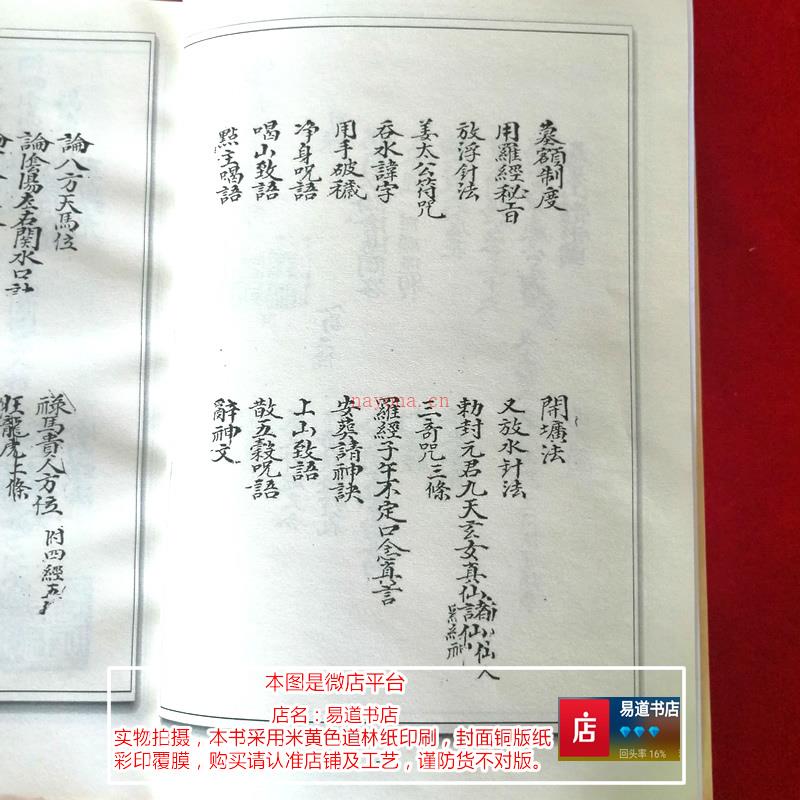 墓額制度
開壙法
用羅經秘旨
又放水針法
放浮針法
勅封元君九天玄女真仙諸仙仙人
姜太公符咒
三奇咒三條
吞水諱字
羅經子午不定口念真言
用手破穢
安葬請神訣
净身呪語
上山致語
喝山致語
散五穀呪語
點主喝語
辭神文
論八方天馬位
祿馬貴人方位 附四經五
論陰陽左右関水口
旺龍虎上條
nayona.cn
本图是微店平台
店名：易道书店
实物拍摄，本书采用米黄色道林纸印刷，封面铜版纸
彩印覆膜，购买请认准店铺及工艺，谨防货不对版。
店
易道书店
回头率 16%